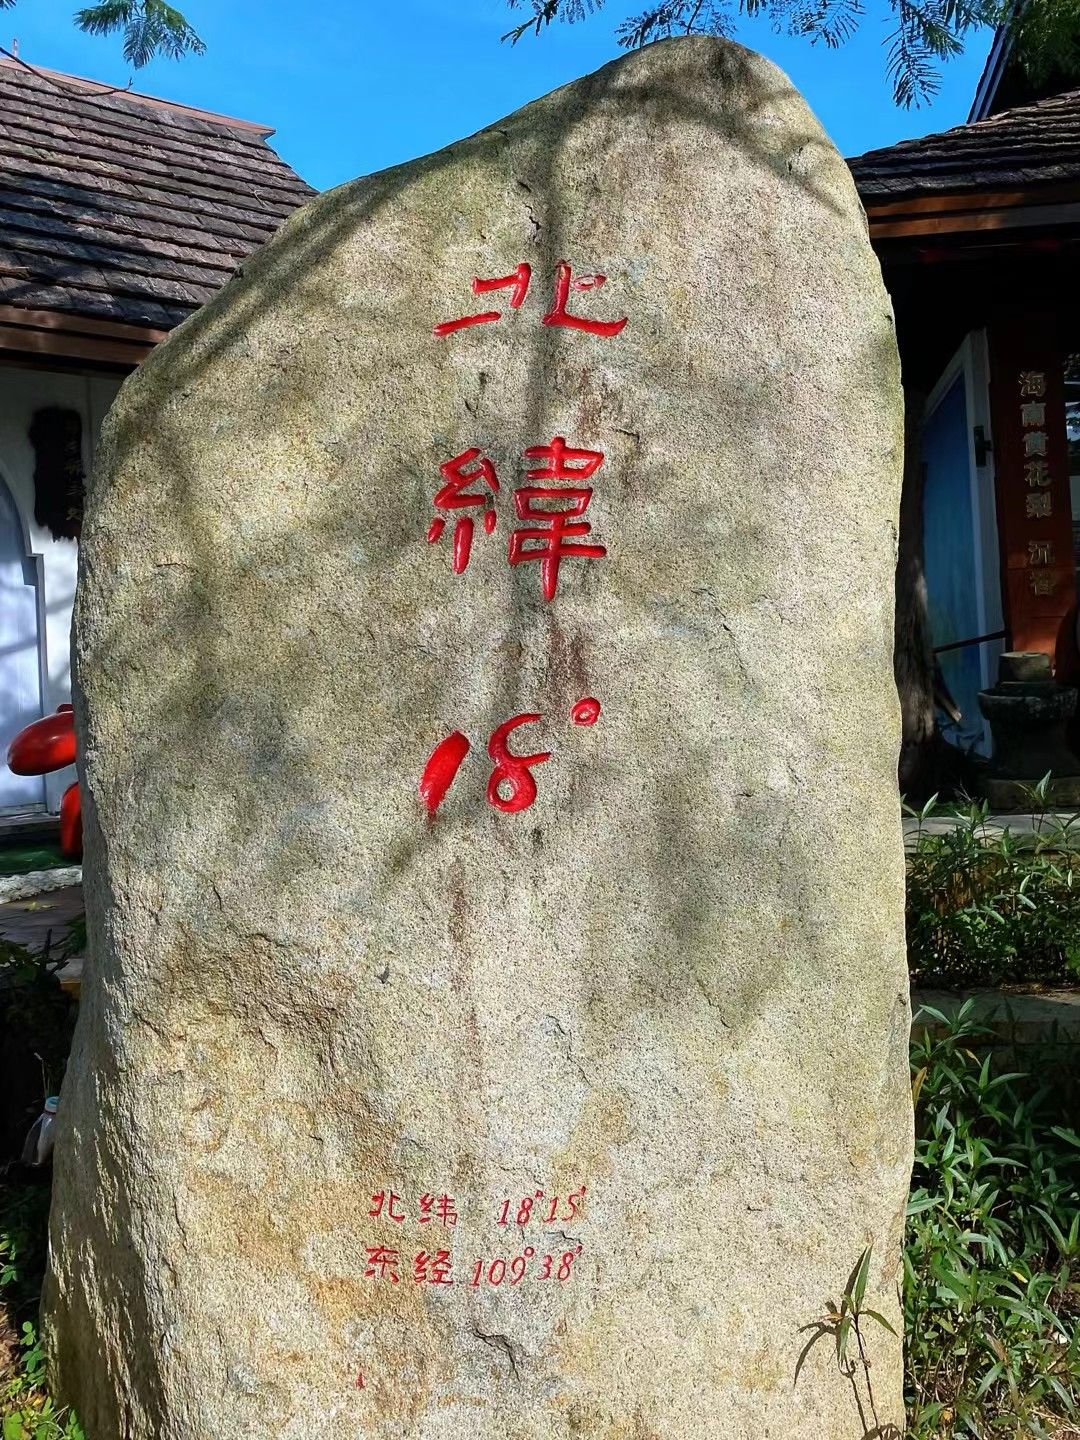 北
緯
18°
北纬 18°15′
东经 109°38′
海南黄花梨 沉香